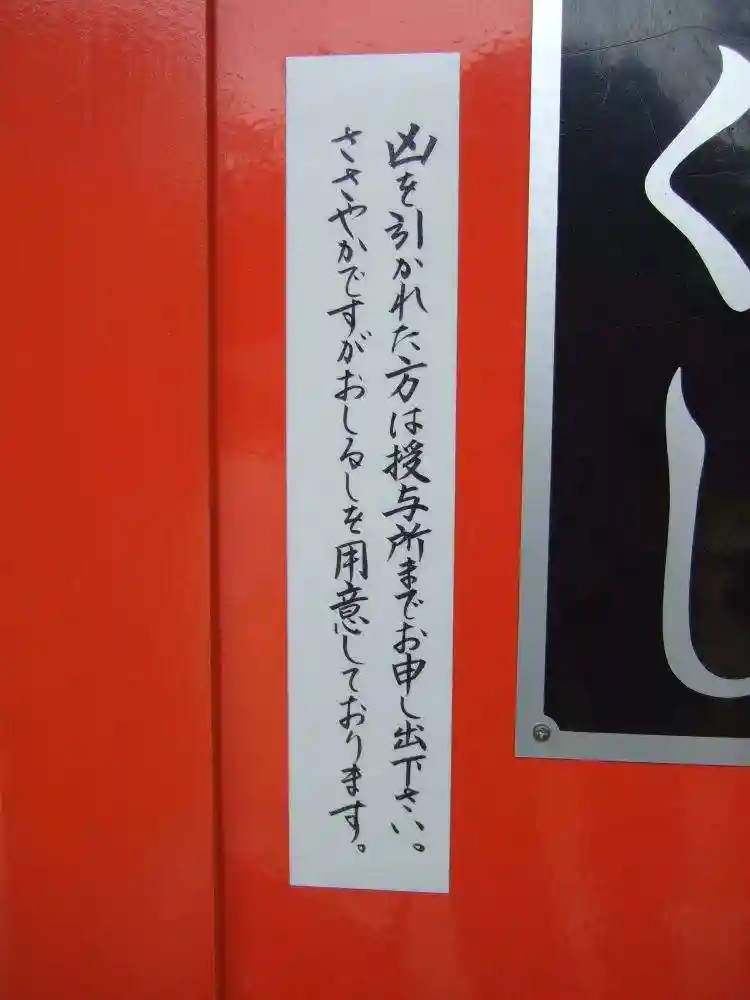 くじ
凶を引かれた方は授与所までお申し出下さい。
ささやかですがおしるしを用意しております。